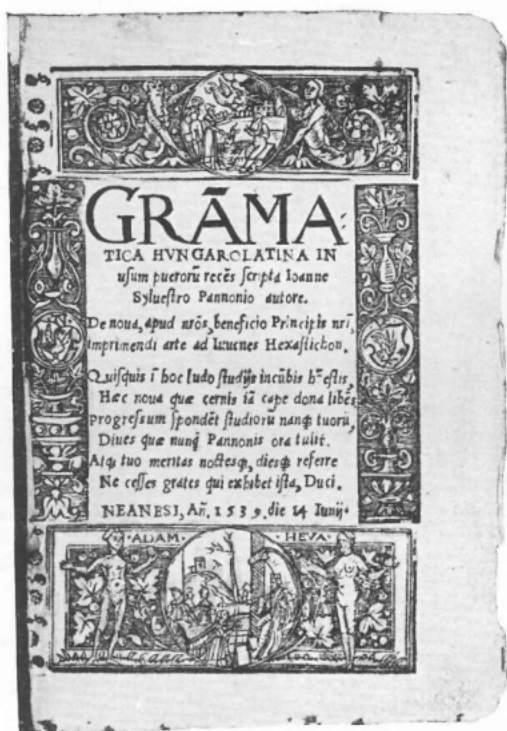 GRĀMA
TICA HVNGAROLATINA IN
usum puerorū recēs scripta Ioanne
Syluestro Pannonio autore.
De noua, apud nrōs, beneficio Principis nrī,
imprimendi arte ad Iuuenes Hexastichon.
Quisquis ī hoc ludo studijs incūbis honestis,
Hæc noua quæ cernis iā cape dona libēs
progressum spondēt studiorū nanq; tuorū,
Diues quæ nunq̄ Pannonis ora tulit.
Atq; tuo meritas noctesq;, diesq; referre
Ne cesses grates qui exhibet ista, Duci.
NEANESI, Añ. 1539. die 14 Iunij.
·ADAM· ·HEVA·